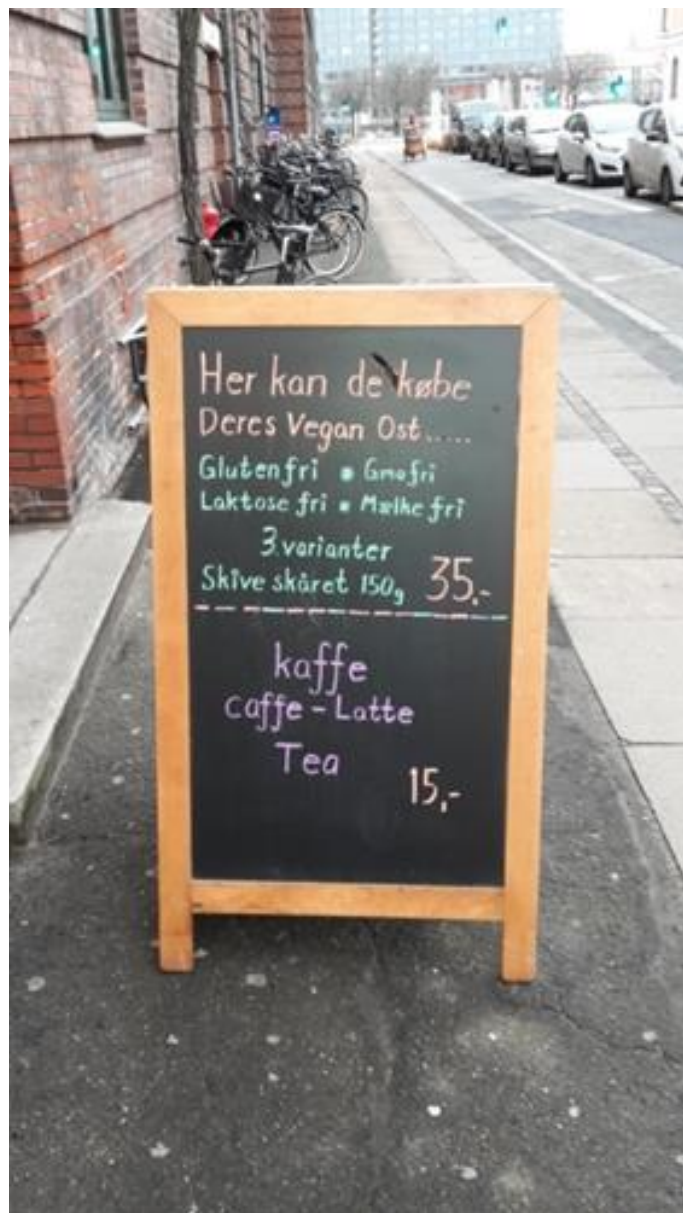 Her kan de købe
Deres Vegan Ost.....
Glutenfri • Gmofri
Laktose fri • Mælke fri
3 varianter
Skive skåret 150g 35.-
kaffe
caffe - Latte
Tea
15,-